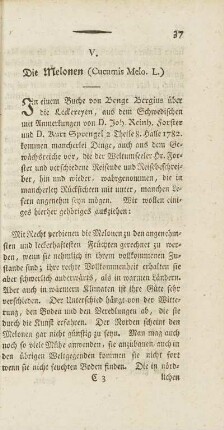 37
V.
Die Melonen (Cucumis Melo. L.)
In einem Buche von Benge Bergius über
die Leckereyen, aus dem Schwedischen
mit Anmerkungen von D. Joh. Reinh. Forster
und D. Kurt Sprengel 2 Theile 8. Halle 1782.
kommen mancherlei Dinge, auch aus dem Ge-
wächsreiche vor, die der Weltumseeler Hr. For-
ster und verschiedene Reisende und Reisebeschrei-
ber, hin und wieder, wahrgenommen, die in
mancherley Rücksichten mit unter, manchen Le-
sern angenehm seyn mögen. Wir wollen eini-
ges hierher gehöriges ausziehen:
Mit Recht verdienen die Melonen zu den angenehm-
sten und leckerhaftesten Früchten gerechnet zu wer-
den, wenn sie nehmlich in ihrem vollkommenen Zu-
stande sind; ihre rechte Vollkommenheit erhalten sie
aber schwerlich anderwärts, als in warmen Ländern.
Aber auch in wärmern Klimaten ist ihre Güte sehr
verschieden. Der Unterschied hängt von der Witte-
rung, den Boden und den Veredlungen ab, die sie
durch die Kunst erfahren. Der Norden scheint den
Melonen gar nicht günstig zu seyn. Man mag auch
noch so viele Mühe anwenden, sie anzubauen; auch in
den übrigen Weltgegenden kommen sie nicht fort
wenn sie nicht feuchten Boden finden. Die in nörd-
C 3 lichen